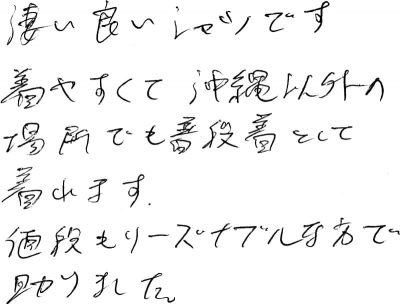 凄い良いシャツです
着やすくて 沖縄以外の
場所でも普段着として
着れます.
値段もリーズナブルな方で
助りました。